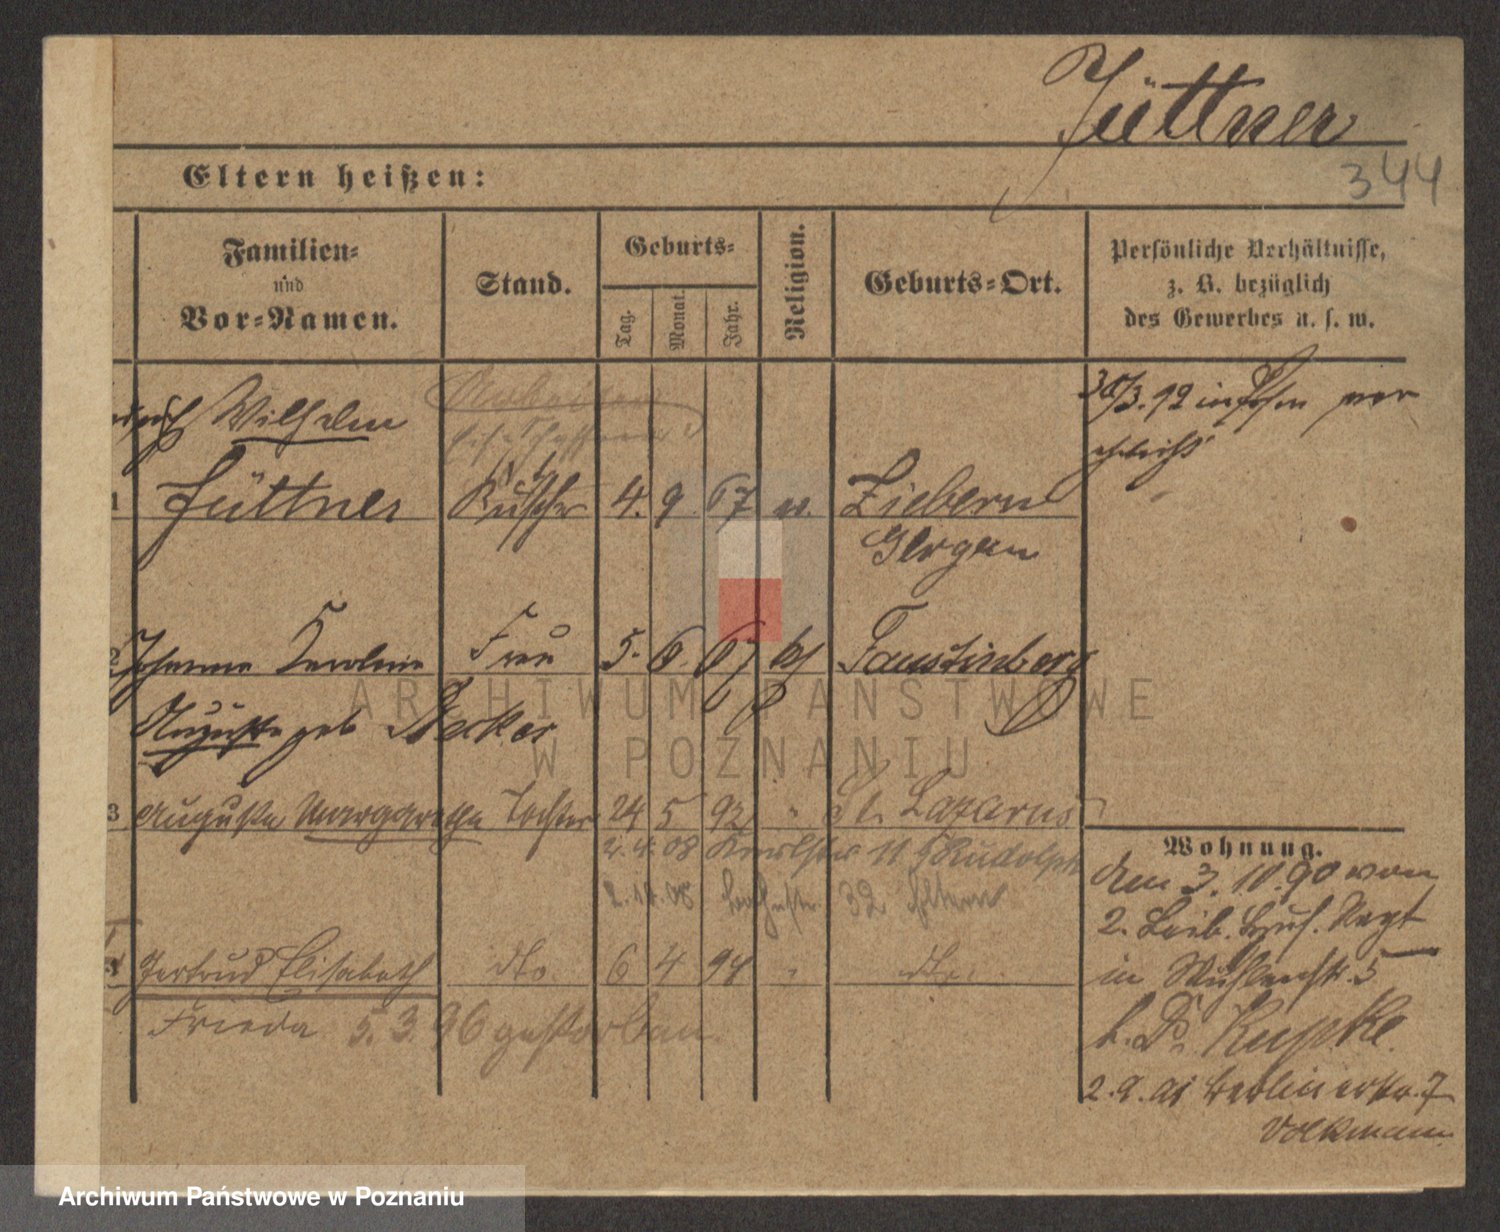 Jüttner
344
Eltern heißen:
Familien=
und
Vor=Namen.
Stand.
Geburts=
Tag.
Monat.
Jahr.
Religion.
Geburts=Ort.
Persönliche Verhältnisse,
z. B. bezüglich
des Gewerbes u. s. w.
Wilhelm
1 Jüttner Kutscher 4. 9. 67 Ziebern
Glogau
2 Johanna Karoline Frau 5. 6. 67 Faustinberg
Auguste geb Becker
3 Auguste Margarethe Tochter 24 5 92 " St. Lazarus
2. 4. 08 11 Rudolph
08 32 Eltern
Gertrud Elisabeth dto. 6 4 94 " dto.
Frieda 5. 3. 96 gestorben.
30/3. 12 in Posen ver
ehelicht
Wohnung.
den 3. 10. 90 vom
2. Leib. Hus. Regt
in Mühlenstr. 5
b. Dr. Kupke.
2. 9. 91 Berlinerstr. 7
Volkmann
ARCHIWUM PAŃSTWOWE
W POZNANIU
Archiwum Państwowe w Poznaniu